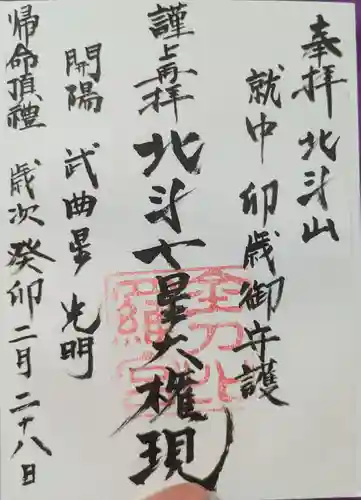 奉拝 北斗山
就中 卯歳御守護
謹上再拝 北斗七星大権現
開陽 武曲星 光明
帰命頂禮 歳次癸卯二月二十八日